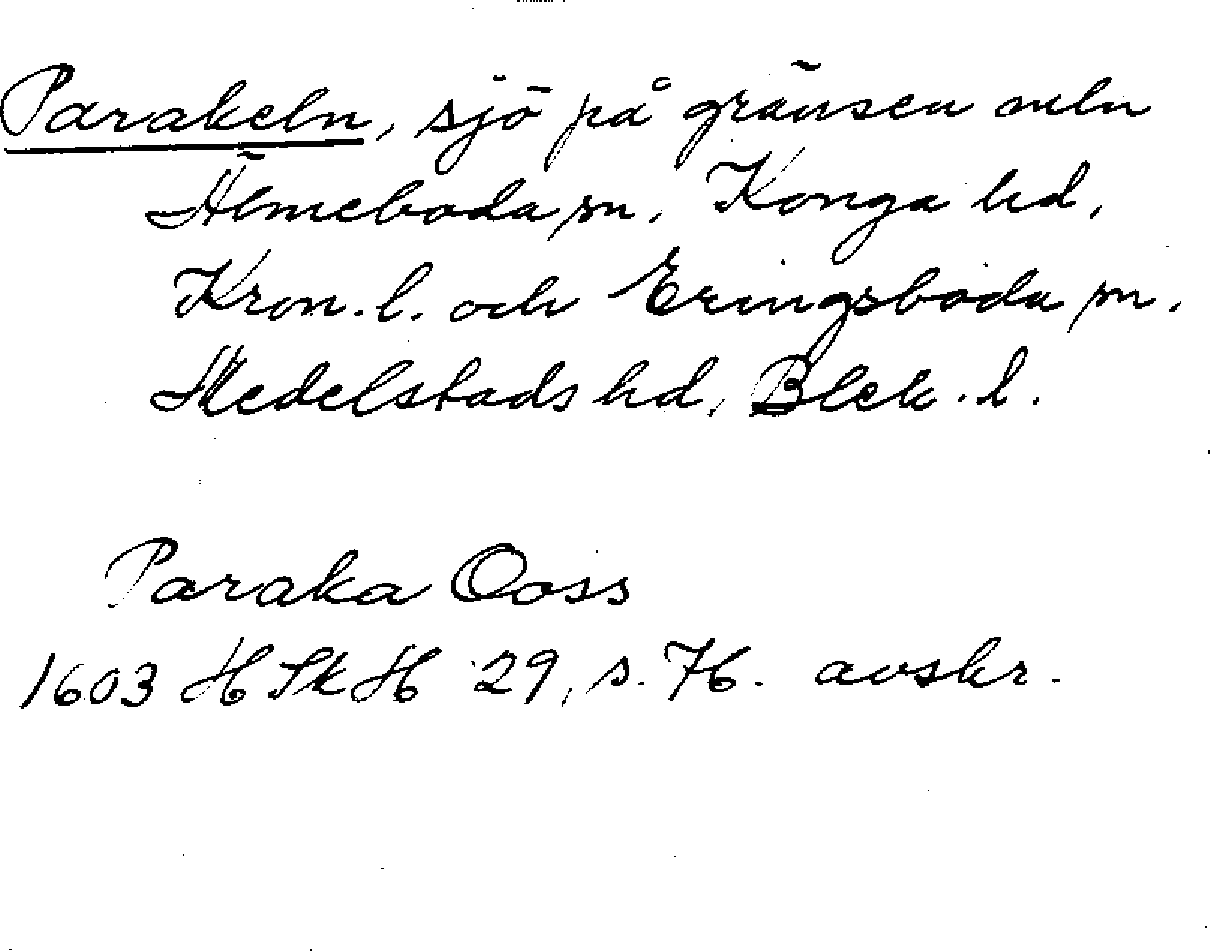 Parakeln, sjö på gränsen mln
Älmeboda sn, Konga hd,
Kron. l. och Eringsboda sn.
Medelstads hd, Blek. l.
Paraka Ooss
1603 HSkH 29, s. 76. avskr.